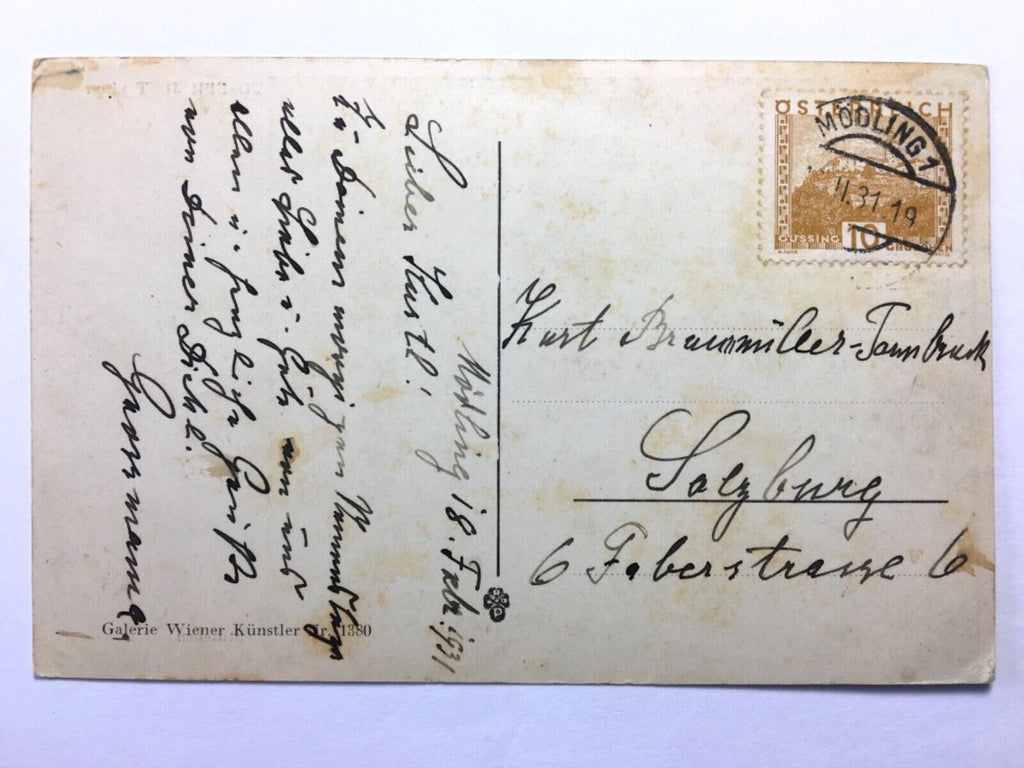 ÖSTERREICH
MÖDLING 1
II.31 19
GÜSSING 10 GROSCHEN
Mödling 18. Febr. 1931
Lieber Kurtl!
Zu Deinem morigen Namenstage
alles Liebe u. Gute von uns
allen u. herzliche Grüße
von Deiner Dich l.
Grossmama
Kurt Braunmüller-Tannbruck
Salzburg
6 Faberstrasse 6
Galerie Wiener Künstler Nr. 1380